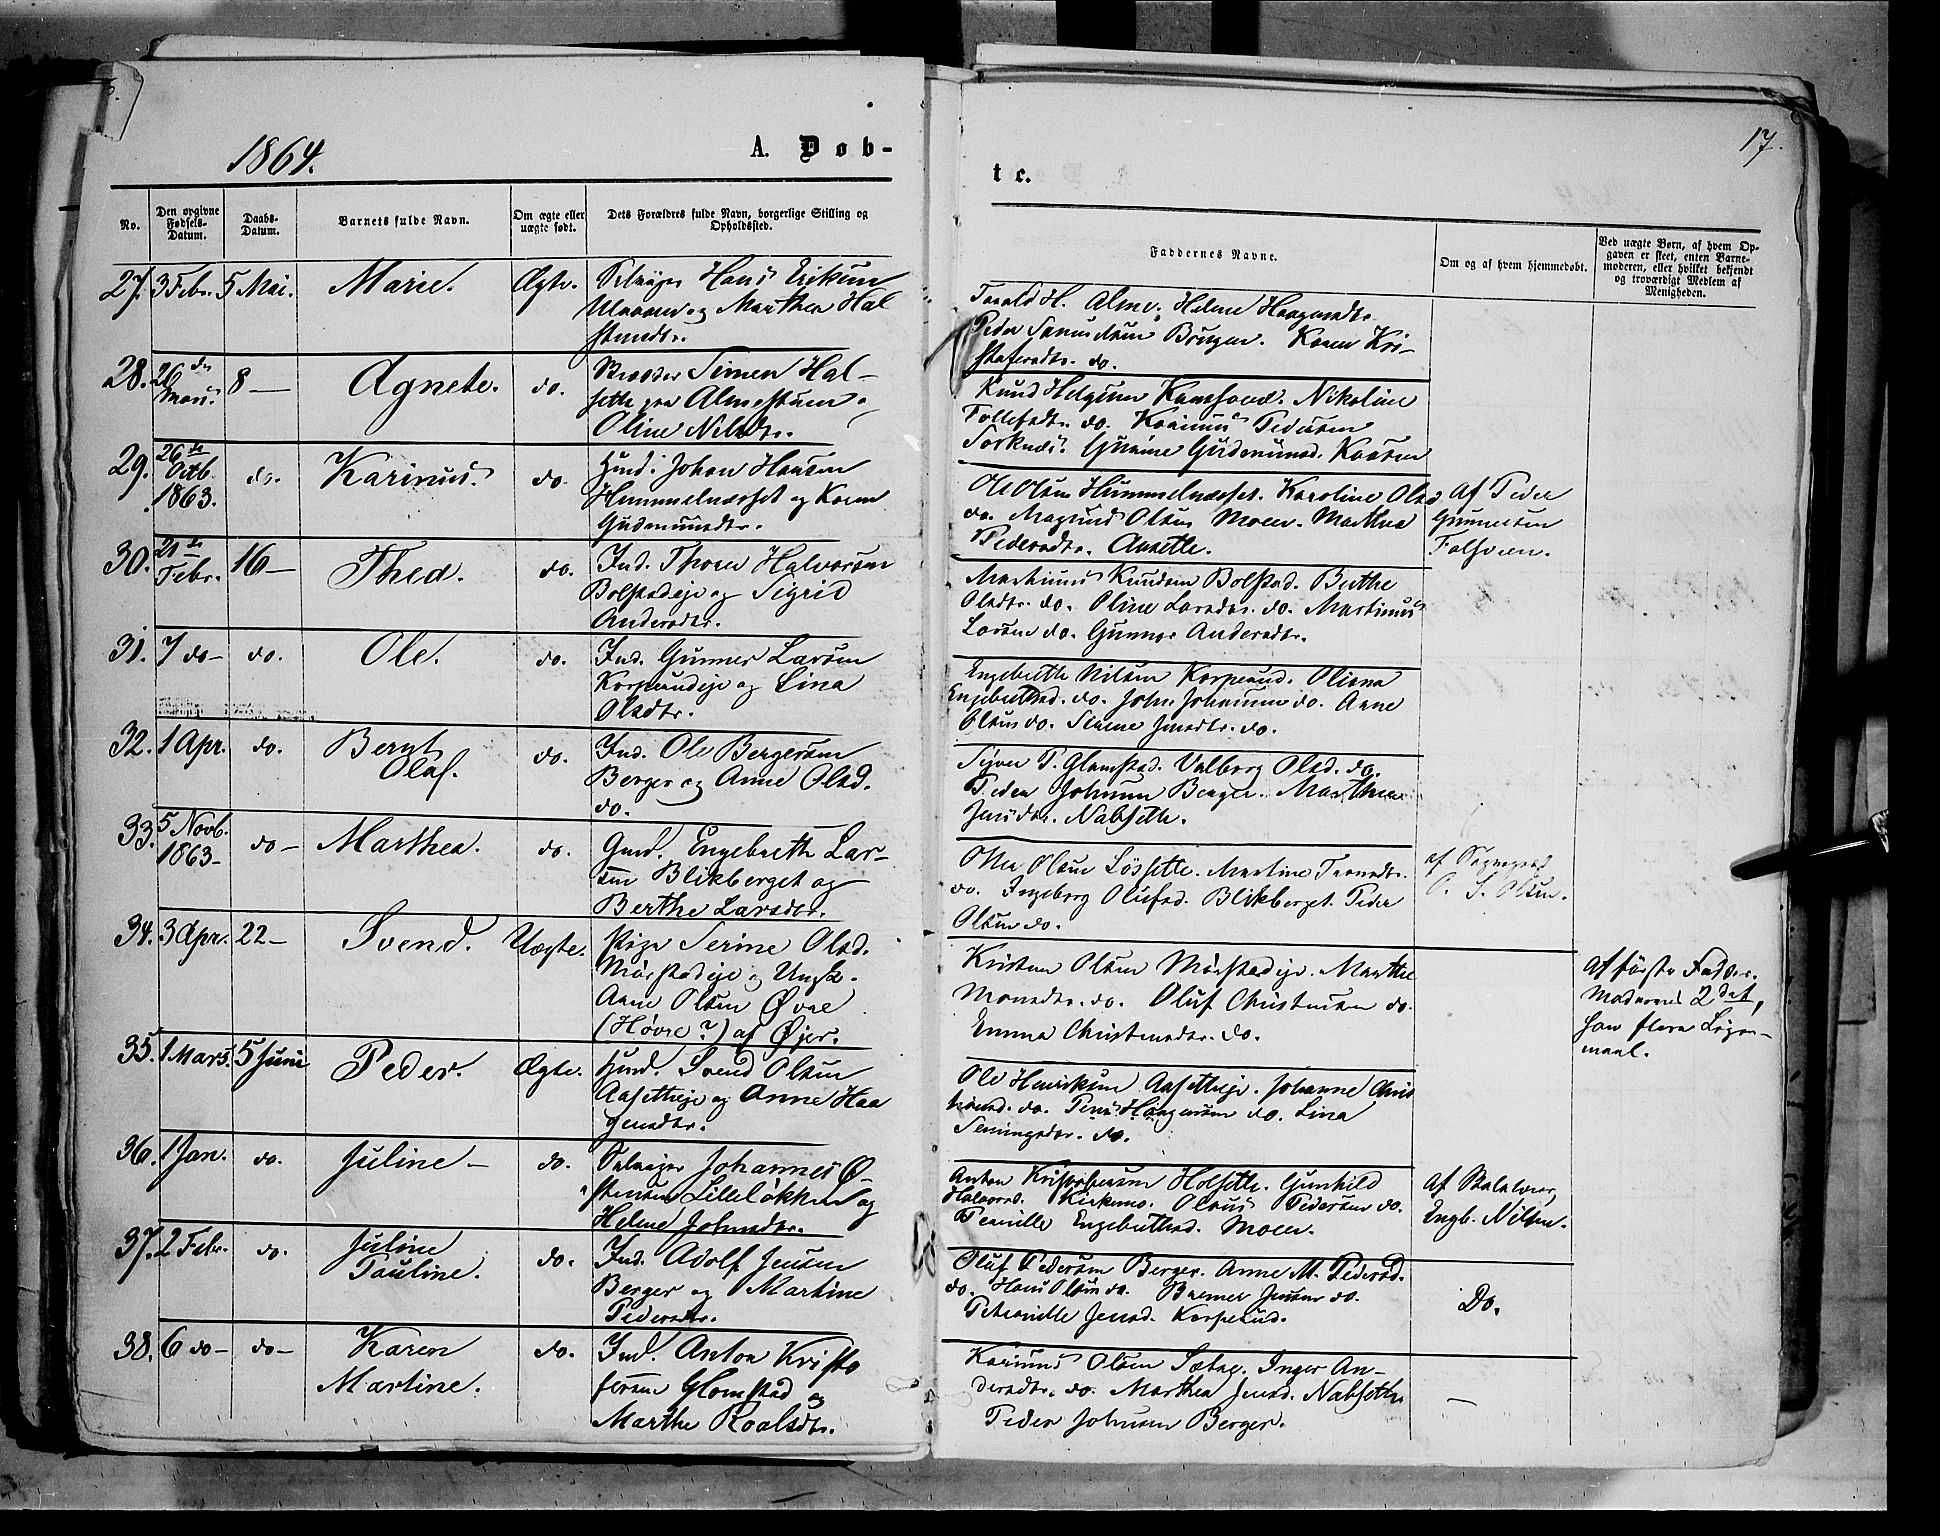 1864.
A. Døb-
No.
Den opgivne
Fødsels-
Datum.
Daabs-
Datum.
Barnets fulde Navn.
Om ægte eller
uægte født.
Dets Forældres fulde Navn, borgerlige Stilling og
Opholdssted.
27. 3 Febr. 5 Mai. Marie. Ægte.
Hans Eriksen
og Marthea Hal
28. 26 de
Mars. 8 — Agnete. do.
Simen Hal-
Oline Nilsdtr.
29. 26 de
Octb.
1863. do. Karinus. do.
Husmd. Johan Hansen
Hemmelnæsset og Karen
Gudmundsdtr.
30. 21 de
Febr. 16 — Thea. do.
Ind. Thorer Halvorsen
Bolstadeje og Sigrid
Andersdtr.
31. 7 do — do. Ole. do.
Ind. Gunner Larsen
Korperudeje og Lina
Olsdtr.
32. 1 Apr. do. Bernt
Olaf. do.
Ind. Ole Bergersen
Berger og Anne Olsd.
do.
33. 5 Novb.
1863 — do — Marthea. do.
Gmd. Engebreth Lar-
sen Blikberget og
Berthe Larsdtr.
34. 3 Apr. 22 — Svend. Uægte.
Pige Serine Olsd.
Mørstadeje og Ungk.
Arne Olsen Øvre
(Høvre?) af Øjer.
35. 1 Mars. 5 Juni Peder. Ægte.
Husmd. Svend Olsen
Aasetteje og Anne Haa
gensdtr.
36. 1 Jan. do. Juline — do.
Selvejer Johannes Ø-
stensen Lilleløkken og
Helene Johnsdtr.
37. 2 Febr. do. Juline
Pauline. do.
Ind. Adolf Jensen
Berger og Martine
Pedersdtr.
38. 6 do — do — Karen
Martine. do.
Ind. Anton Kristo
fersen Glomstad og
Marthe Roalsdtr.
17.
t e.
Faddernes Navne.
Om og af hvem hjemmedøbt.
Ved uægte Børn, af hvem Op-
gaven er skeet, enten Barne-
moderen, eller hvilket bekjendt
og troværdigt Medlem af
Menigheden.
H. Alme. Helene Haagensdtr.
Peder Karen Kri-
stofersdtr. do.
Knud Helgesen Nikoline
do. Karinus Pedersen
Ole Olsen Hemmelnæsset. Karoline Olsd
do. Magnus Olsen Moen. Marthea
Pedersdtr. Aasette.
Af Peder
Gunnersen
Martinus Knudsen Bolstad. Berthe
Olsdtr. do. Oline Larsdtr. do. Martinus
Larsen do. Gunnor Andersdtr.
Engebreth Nilsen Korperud. Oliana
Engebrethsd. do. John Johnsen do. Anne
Olsen do. Jensdtr. do.
Syver P. Glomstad. Valborg Olsd. do.
Peder Johnsen Berger. Marthea
Jensdtr. Nabsette.
Otter Olsen Løssette. Martine
do. Ingeborg Olufsd. Blikberget. Peder
Olsen do.
af
O. S. Olsen.
Kristen Olsen Mørstadeje. Marthe
Monsdtr. do. Oluf Christensen do.
Emma Christensdtr. do.
Af første Fadder.
Moderens 2det,
maal.
Ole Henriksen Aasetteje. Johanne
do. Haagensen do. Lina
do.
Anton Kristofersen Holsette. Gunhild
Halvorsd. Kirkemo. Olaus Pedersen do.
Pernille Engebrethsd. Moen.
Af
Engb. Nilsen.
Oluf Pedersen Berger. Anne M. Pedersd.
do. Hans Olsen do. Jensen do.
Petronille Jensd. Korperud.
Do.
Karinus Olsen Inger An-
dersdtr. do. Marthea Jensd. Nabsette
Peder Johnsen Berger.
—